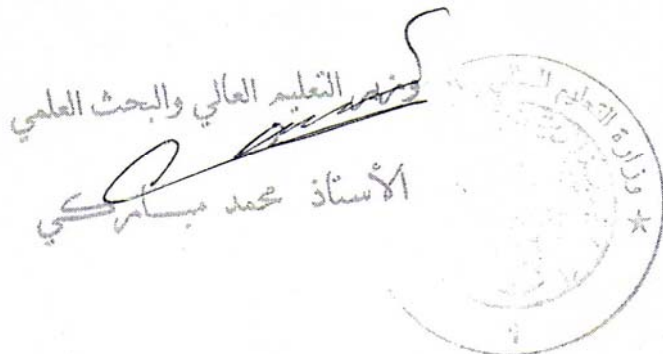 وزير التعليم العالي والبحث العلمي
الأستاذ محمد مباركي
وزارة التعليم العالي